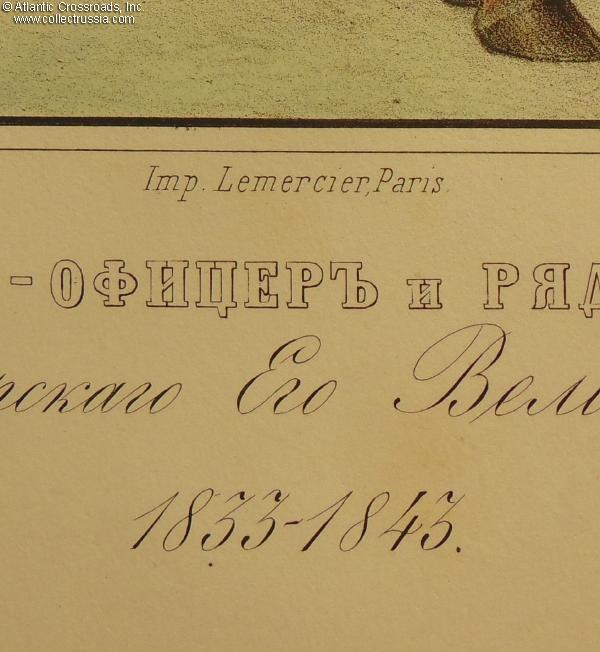 © Atlantic Crossroads, Inc.
www.collectrussia.com
Imp. Lemercier, Paris.
-ОФИЦЕРЪ и РЯД
рскаго Его Вели
1833-1843.